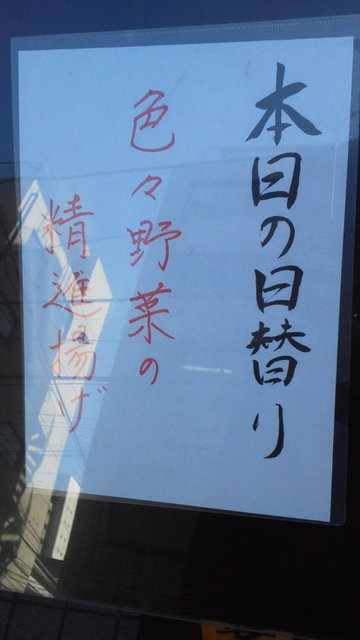 本日の日替り
色々野菜の
精進揚げ